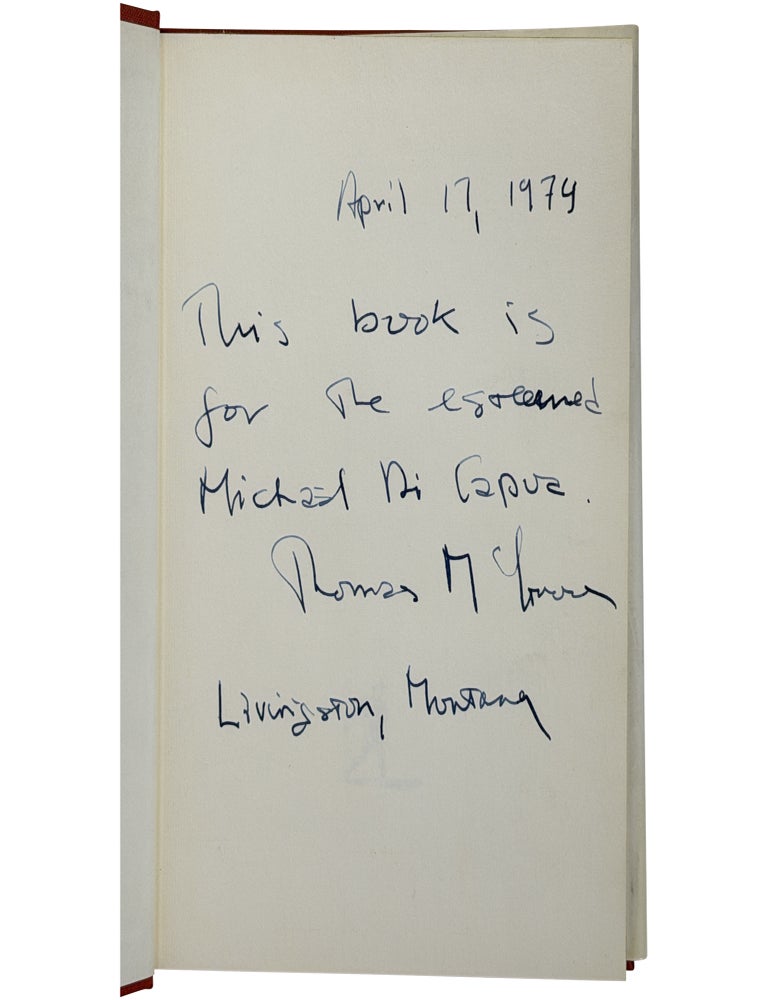 April 17, 1974
This book is
for the esteemed
Michael Di Capua.
Thomas McGuane
Livingston, Montana